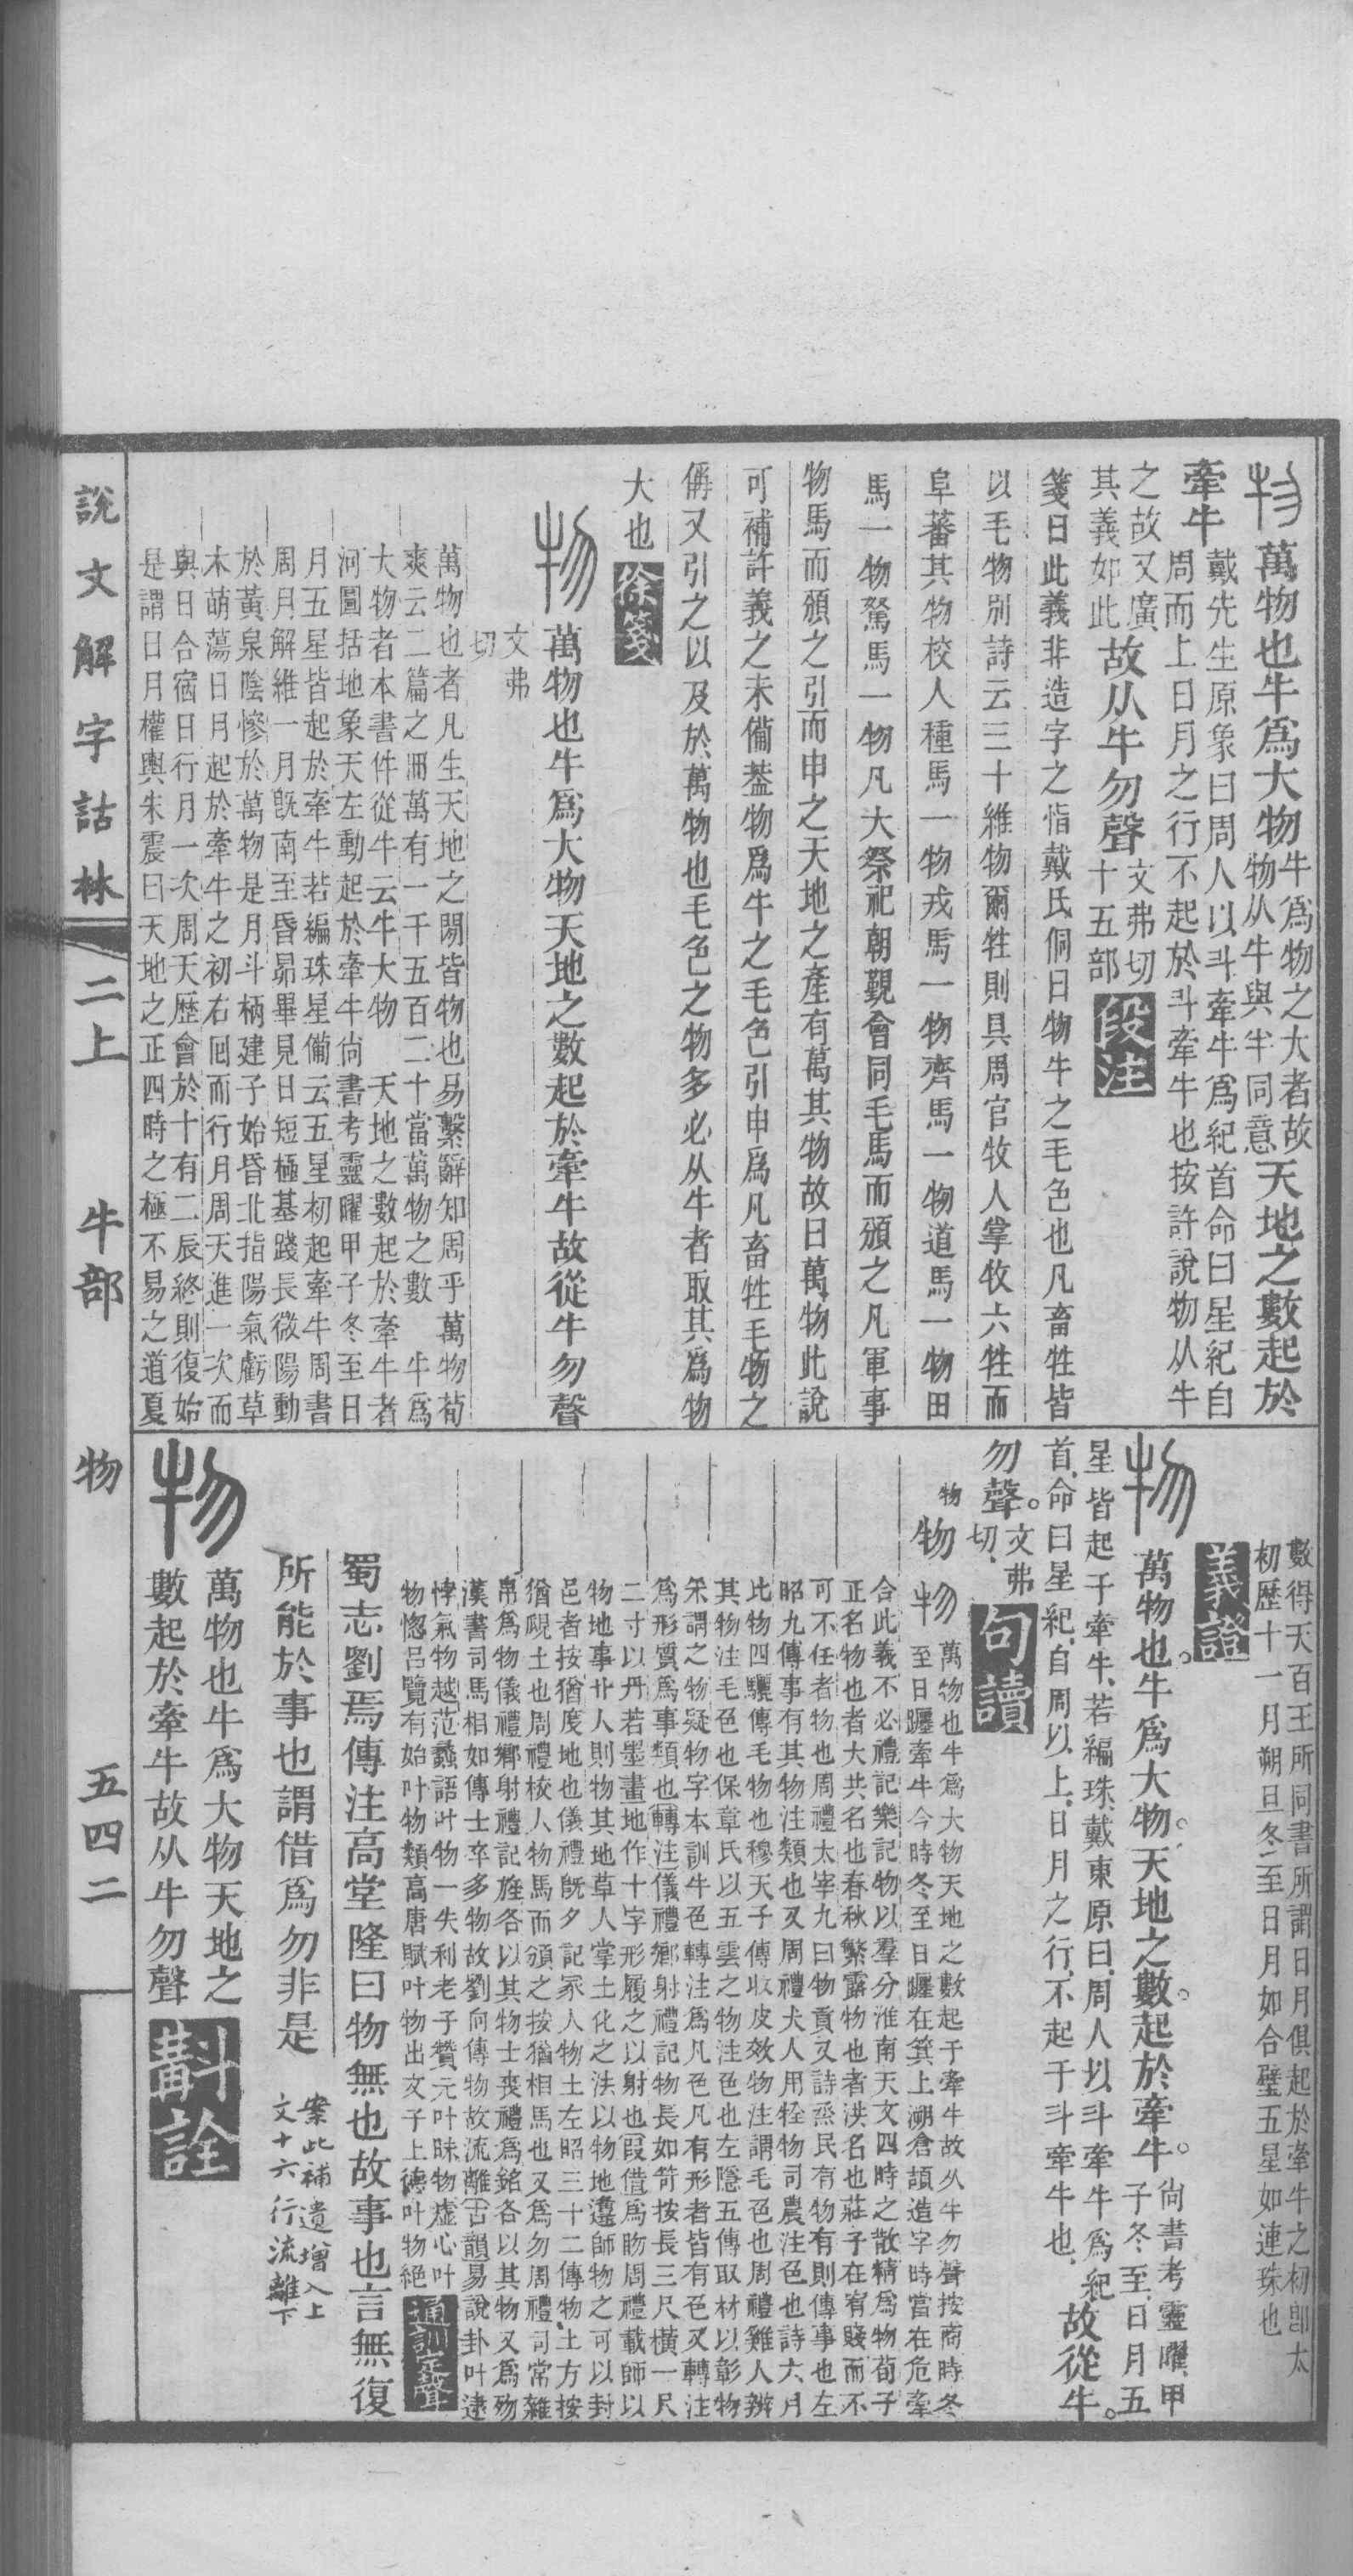 物萬物也牛爲大物牛爲物之大者故物从牛與半同意天地之數起於
牽牛戴先生原象曰周人以斗牽牛爲紀首命曰星紀自周而上日月之行不起於斗牽牛也按許說物从牛
之故又廣其義如此故从牛勿聲文弗切十五部段注
箋曰此義非造字之恉戴氏侗曰物牛之毛色也凡畜牲皆
以毛物別詩云三十維物爾牲則具周官牧人掌牧六牲而
阜蕃其物校人種馬一物戎馬一物齊馬一物道馬一物田
馬一物駑馬一物凡大祭祀朝覲會同毛馬而頒之凡軍事
物馬而頒之引而申之天地之產有萬其物故曰萬物此說
可補許義之未備葢物爲牛之毛色引申爲凡畜牲毛物之
偁又引之以及於萬物也毛色之物多必从牛者取其爲物
大也徐箋
物萬物也牛爲大物天地之數起於牽牛故從牛勿聲
文弗切
萬物也者凡生天地之閒皆物也易繫辭知周乎萬物荀
爽云二篇之冊萬有一千五百二十當萬物之數 牛爲
大物者本書件從牛云牛大物 天地之數起於牽牛者
河圖括地象天左動起於牽牛尙書考靈曜甲子冬至日
月五星皆起於牽牛若編珠星備云五星初起牽牛周書
周月解維一月旣南至昏昴畢見日短極基踐長微陽動
於黃泉陰慘於萬物是月斗柄建子始昏北指陽氣虧草
木萌蕩日月起於牽牛之初右回而行月周天進一次而
與日合宿日行月一次周天歷會於十有二辰終則復始
是謂日月權輿朱震曰天地之正四時之極不易之道夏
數得天百王所同書所謂日月俱起於牽牛之初卽太
初歷十一月朔旦冬至日月如合璧五星如連珠也
義證
物萬物也牛爲大物天地之數起於牽牛尙書考靈曜甲子冬至日月五
星皆起于牽牛若編珠戴東原曰周人以斗牽牛爲紀首命曰星紀自周以上日月之行不起于斗牽牛也故從牛
勿聲文弗切句讀
物物物萬物也牛爲大物天地之數起于牽牛故从牛勿聲按商時冬
至日躔牽牛今時冬至日躔在箕上溯倉頡造字時當在危牽
合此義不必禮記樂記物以羣分淮南天文四時之散精爲物荀子
正名物也者大共名也春秋繁露物也者洪名也莊子在宥賤而不
可不任者物也周禮太宰九曰物貢又詩烝民有物有則傳事也左
昭九傳事有其物注類也又周禮犬人用牷物司農注色也詩六月
比物四驪傳毛物也穆天子傳收皮效物注謂毛色也周禮雞人辨
其物注毛色也保章氏以五雲之物注色也左隱五傳取材以彰物
采謂之物疑物字本訓牛色轉注爲凡色凡有形者皆有色又轉注
爲形質爲事類也轉注儀禮鄉射禮記物長如笴按長三尺橫一尺
二寸以丹若墨畫地作十字形履之以射也假借爲昒周禮載師以
物地事卝人則物其地草人掌土化之法以物地邍師物之可以封
邑者按猶度地也儀禮旣夕記冢人物土左昭三十二傳物土方按
猶覞土也周禮校人物馬而頒之按猶相馬也又爲勿周禮司常雜
帛爲物儀禮鄉射禮記旌各以其物士喪禮爲銘各以其物又爲歾
漢書司馬相如傳士卒多物故劉向傳物故流離古韻易說卦叶逮
悖氣物越范蠡語叶物一失利老子贊元叶昧物虛心叶
物惚呂覽有始叶物類高唐賦叶物出文子上德叶物絕通訓定聲
蜀志劉焉傳注高堂隆曰物無也故事也言無復
所能於事也謂借爲勿非是案此補遺增入上文十六行流離下
物萬物也牛爲大物天地之
數起於牽牛故从牛勿聲斠詮
說文解字詁林 二上 牛部 物 五四二